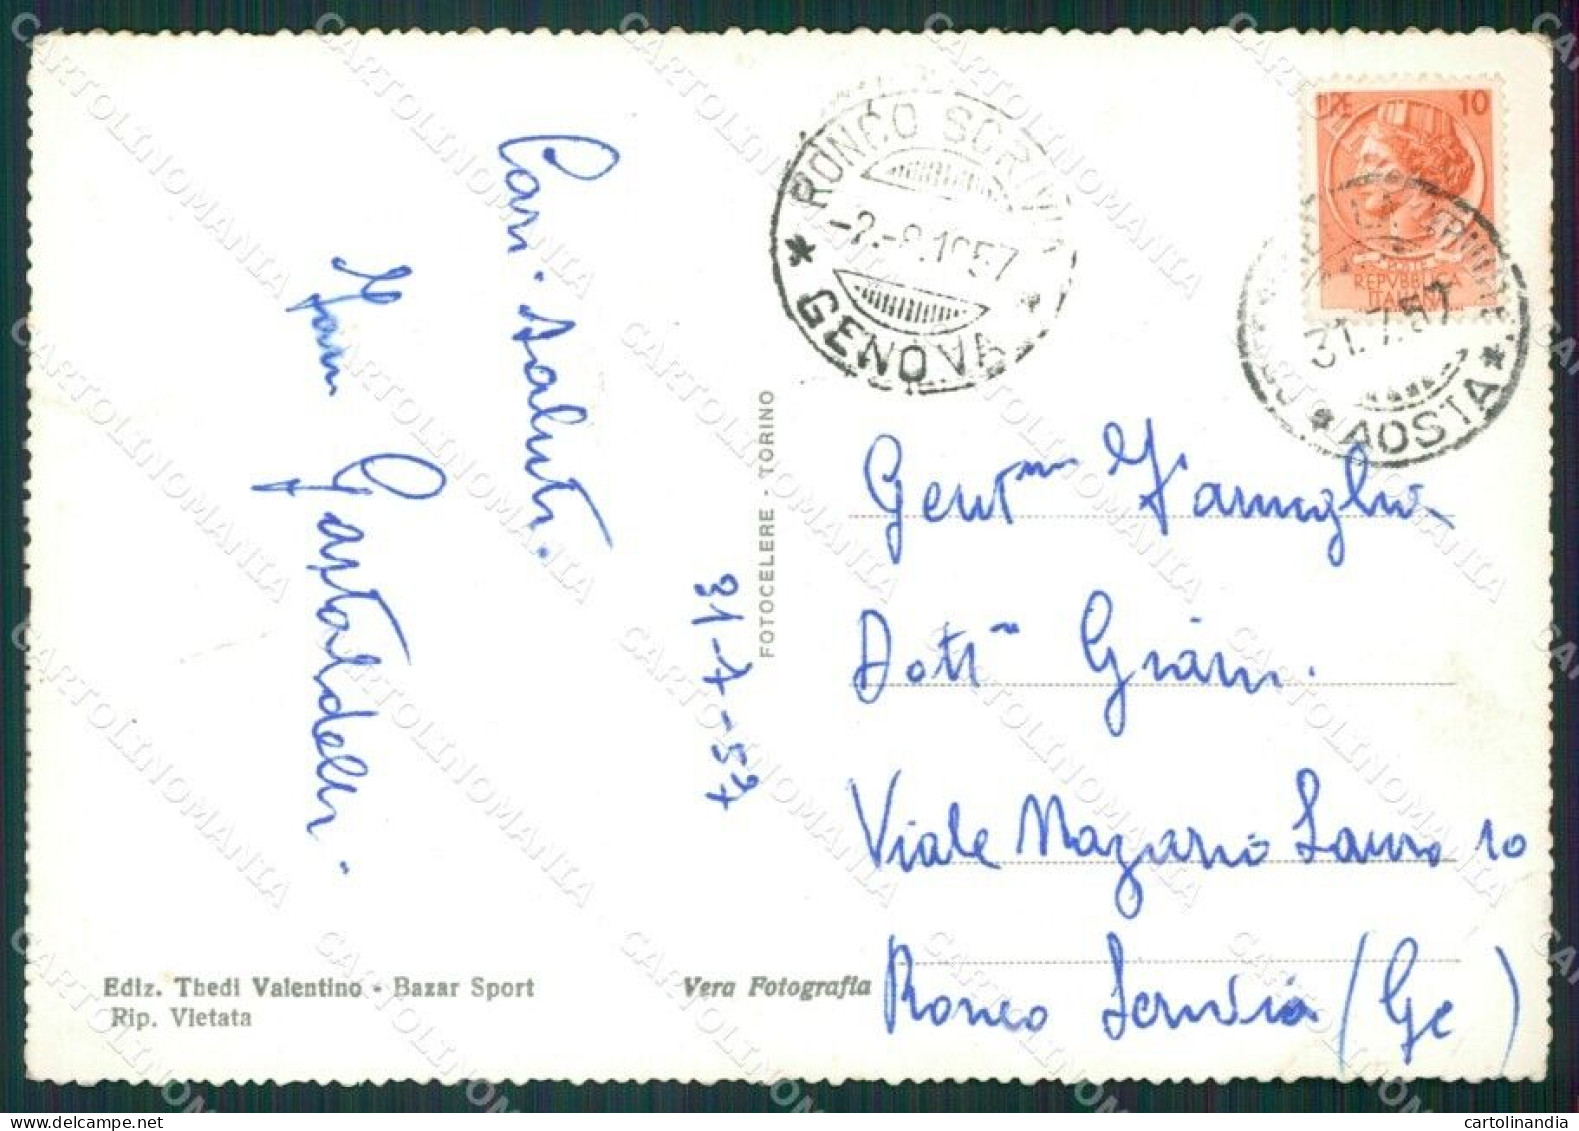 Cari Saluti.
Gastaldelli.
31-7-57
FOTOCELERE - TORINO
RONCO SCRIVIA
-2.-8.1957
* GENOVA *
LIRE 10
POSTE
REPVBBLICA
ITALIANA
31.7.57
* AOSTA *
Gent.ma Famiglia
Dott. Gian.
Viale Nazario Sauro 10
Ronco Scrivia (Ge)
Ediz. Thedi Valentino - Bazar Sport
Rip. Vietata
Vera Fotografia
CARTOLINOMANIA
cartolinandia